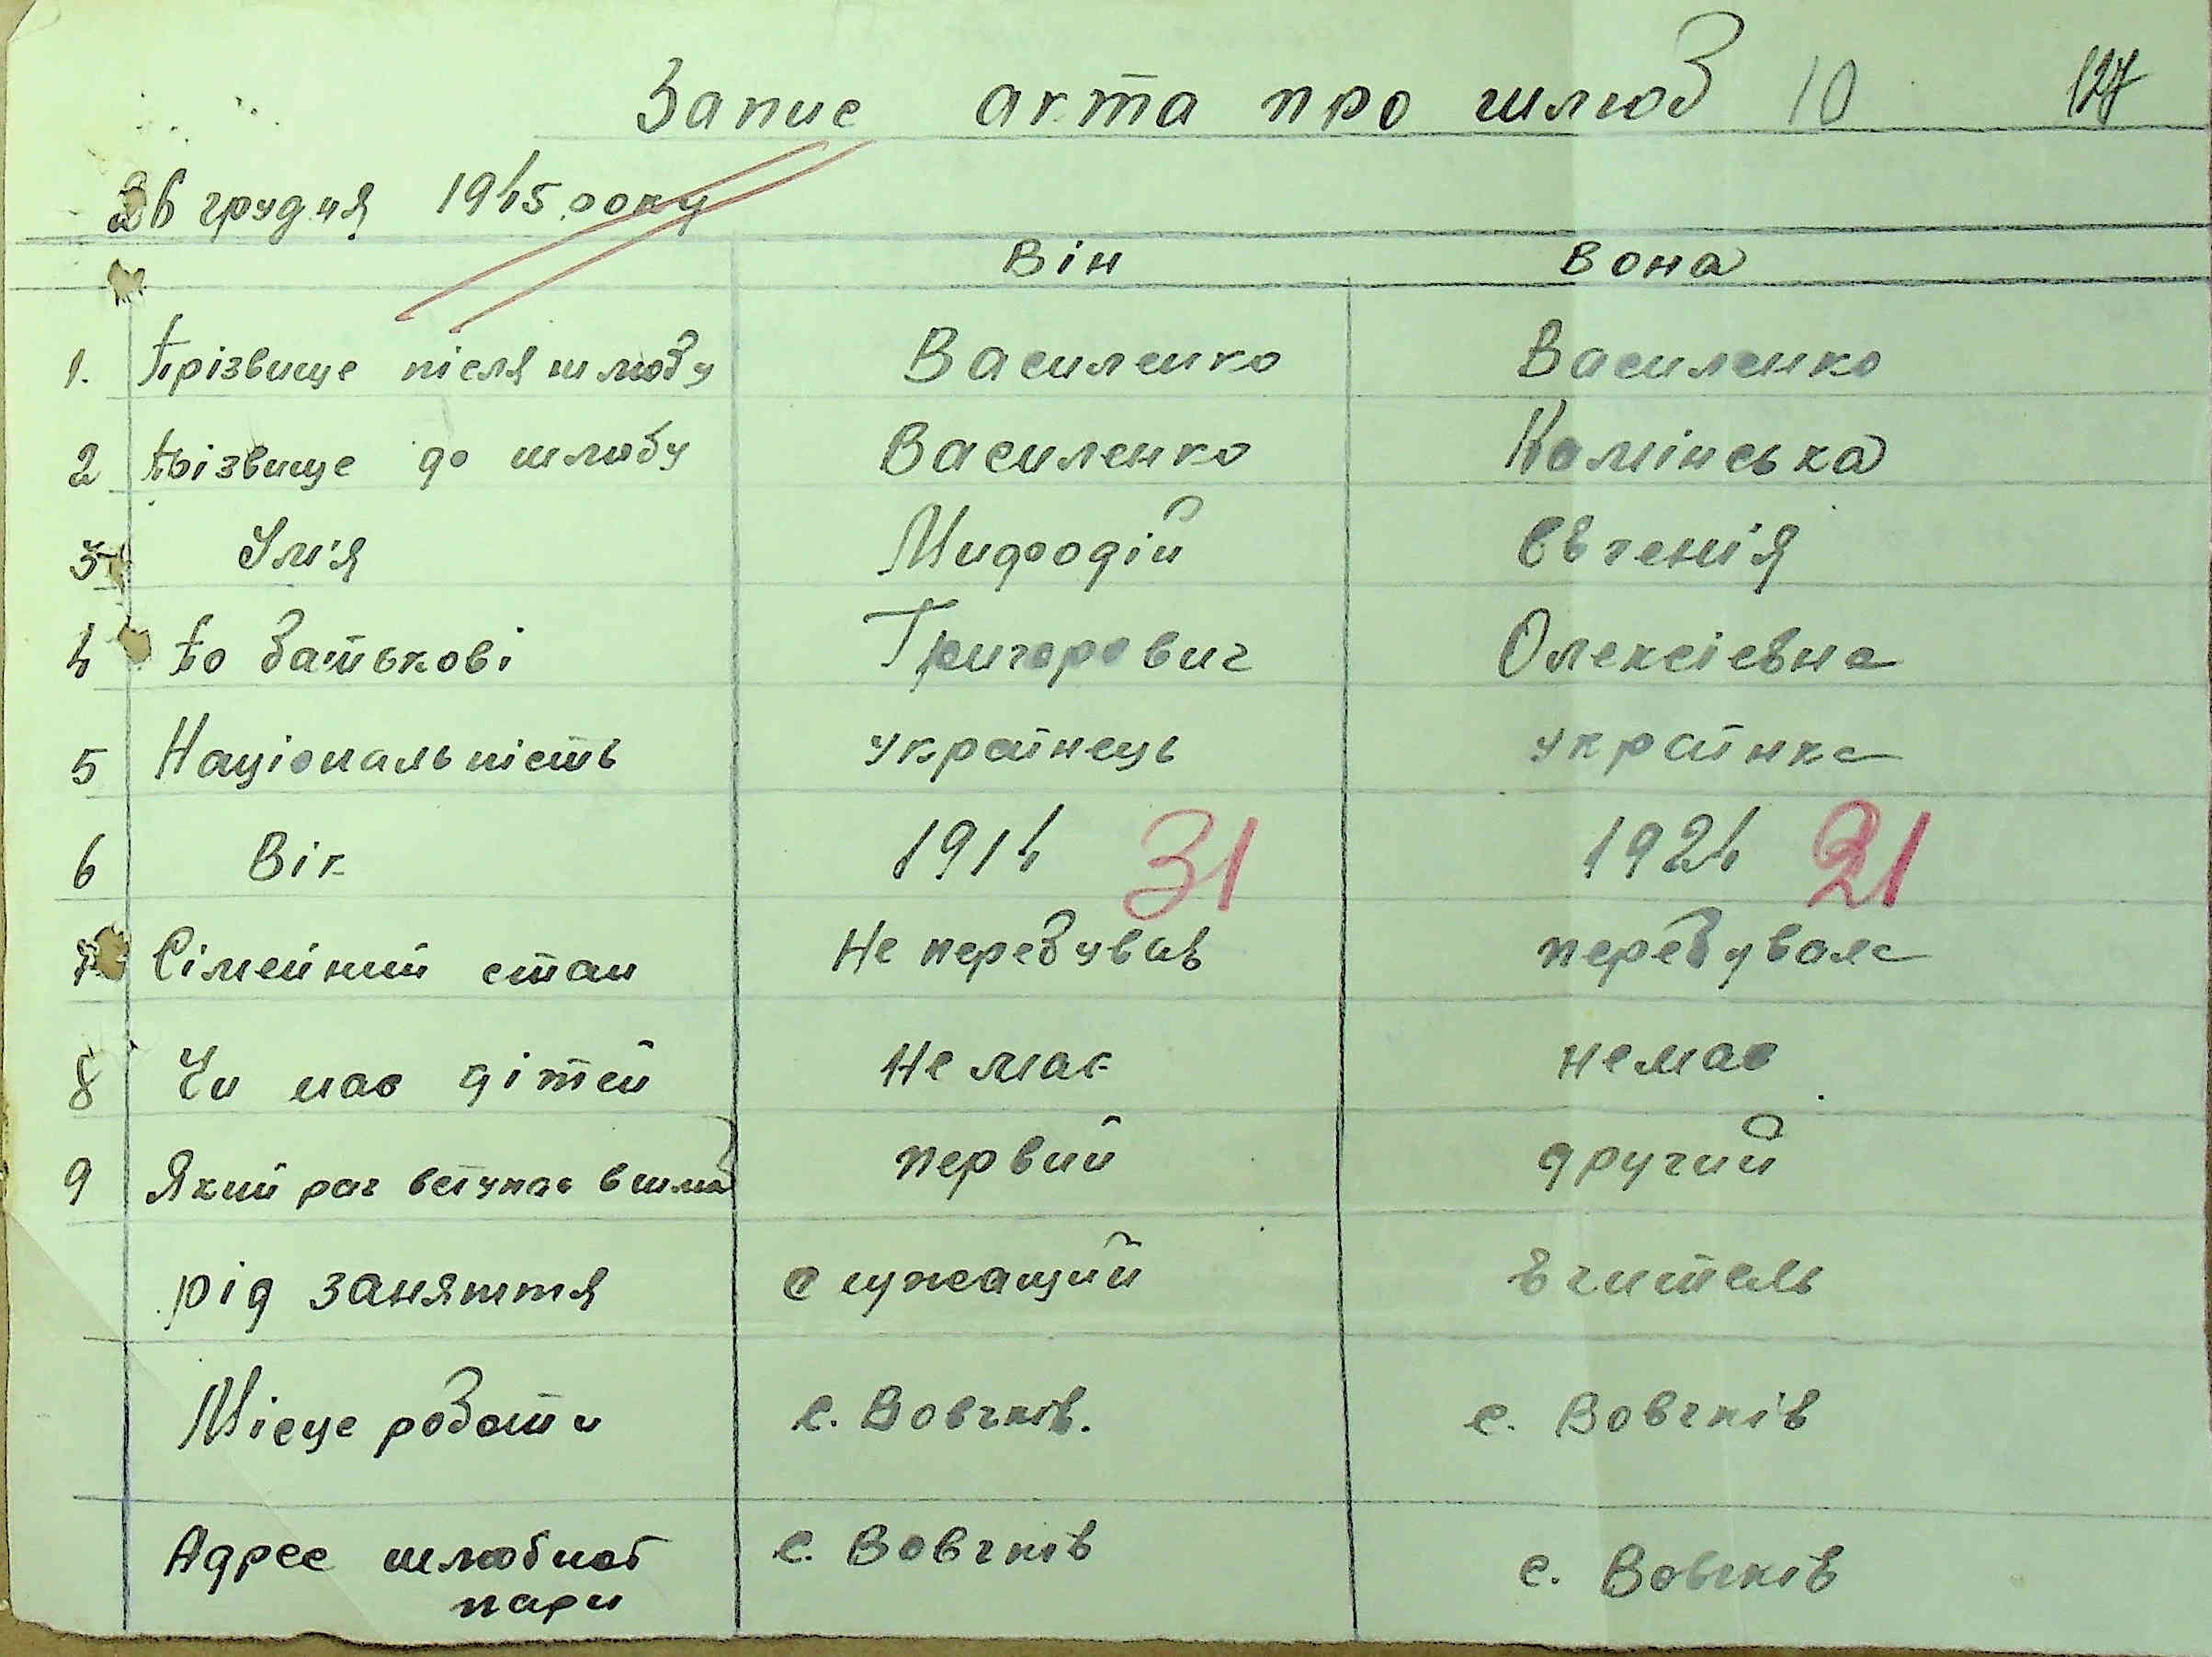 Запис акта про шлюб 10 127
26 грудня 1945 року
Він Вона
1. Прізвище після шлюбу Василенко Василенко
2 Прізвище до шлюбу Василенко Камінська
3 Імʼя Мифодій Євгенія
4 По батькові Григорович Олексіевна
5 Національність українець українка
6 Вік 1914 31 1924 21
7 Сімейний стан Не перебував перебувала
8 Чи має дітей Не має немає
9 Який раз вступає в шлюб первий другий
рід заняття служащий вчитель
Місце роботи с. Вовчків. с. Вовчків
Адрес шлюбної с. Вовчків с. Вовчків
пари